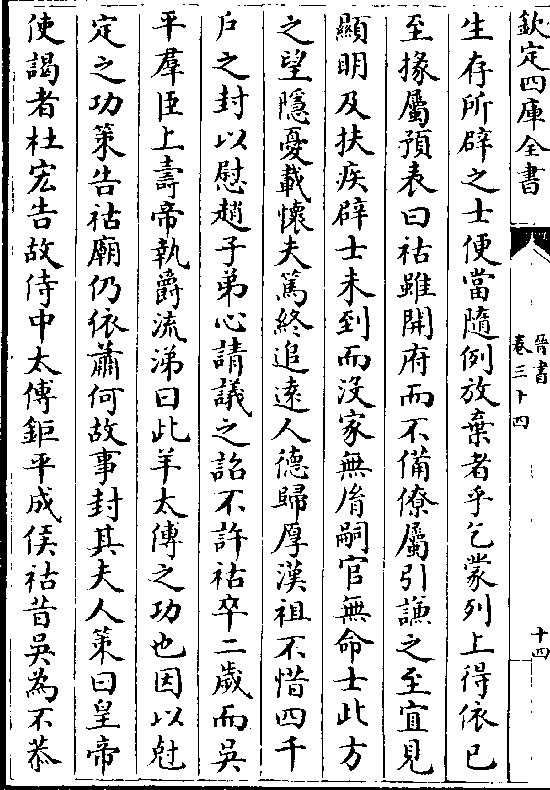 欽定四庫全書
晉書
卷三十四
十四
生存所辟之士便當隨例放棄者乎乞蒙列上得依已
至掾屬預表曰祜雖開府而不備僚屬引謙之至宜見
顯明及扶疾辟士未到而沒家無胤嗣官無命士此方
之望隱憂載懷夫篤終追遠人德歸厚漢祖不惜四千
戶之封以慰趙子弟心請議之詔不許祜卒二歲而吳
平羣臣上壽帝執爵流涕曰此羊太傅之功也因以尅
定之功策告祜廟仍依蕭何故事封其夫人策曰皇帝
使謁者杜宏告故侍中太傅鉅平成侯祜昔吳為不恭